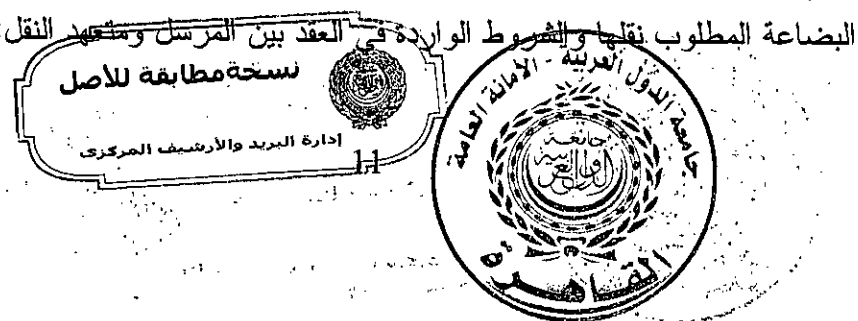 البضاعة المطلوب نقلها والشروط الواردة في العقد بين المرسل ومتعهد النقل.
نسخة مطابقة للأصل
إدارة البريد والأرشيف المركزى
11
جامعة الدول العربية - الأمانة العامة
جامعة الدول العربية
القاهرة